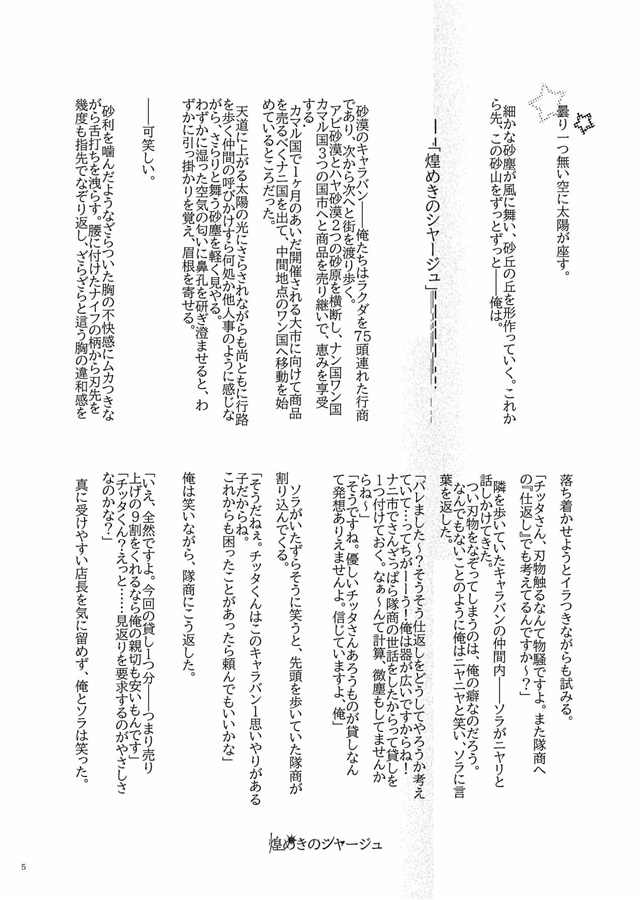 曇り一つ無い空に太陽が座す。
細かな砂塵が風に舞い、砂丘の丘を形作っていく。これか
ら先、この砂山をずっとずっと──俺は。
──「煌めきのシャージュ」────!
砂漠のキャラバン──俺たちはラクダを75頭連れた行商
であり、次から次へと街を渡り歩く。
アビ砂漠とハヤ砂漠2つの砂原を横断し、ナン国ワン国
カマル国3つの国市へと商品を売り継いで、恵みを享受
する.
カマル国で1ヶ月のあいだ開催される大市に向けて商品
を売るべくナニ国を出て、中間地点のワン国へ移動を始
めているところだった。
天道に上がる太陽の光にさらされながらも尚ともに行路
を歩く仲間の呼びかけすら何処か他人事のように感じな
がら、さらりと舞う砂塵を軽く見やる。
わずかに湿った空気の匂いに鼻孔を研ぎ澄ませると、わ
ずかに引っ掛かりを覚え、眉根を寄せる。
──可笑しい。
砂利を噛んだようなざらついた胸の不快感にムカつきな
がら舌打ちを洩らす。腰に付けたナイフの柄から刃先を
幾度も指先でなぞり返し、ざらざらと這う胸の違和感を
落ち着かせようとイラつきながらも試みる。
「チッタさん、刃物触るなんて物騒ですよ。また隊商へ
の『仕返し』でも考えてるんですか〜?」
隣を歩いていたキャラバンの仲間内──ソラがニヤリと
話しかけてきた。
つい刃物をなぞってしまうのは、俺の癖なのだろう。
なんでもないことのように俺はニヤニヤと笑い、ソラに言
葉を返した。
「バレました〜?そうそう仕返しをどうしてやろうか考え
ていて…ってちがーーう!俺は器が広いですからね!
ナニ市でさんざっぱら隊商の世話をしたからって貸しを
1つ付けておく。なぁ〜んて計算、微塵もしてませんか
らね〜」
「そうですね。優しいチッタさんあろうものが貸しなん
て発想ありえませんよ。信じていますよ、俺」
ソラがいたずらそうに笑うと、先頭を歩いていた隊商が
割り込んでくる。
「そうだねぇ。チッタくんはこのキャラバン1思いやりがある
子だからね。
これからも困ったことがあったら頼んでもいいかな」
俺は笑いながら、隊商にこう返した。
「いえ、全然ですよ。今回の貸し1つ分──つまり売り
上げの9割をくれるなら俺の親切も安いもんです」
「チッタくん?えっと……見返りを要求するのがやさしさ
なのかな?」
真に受けやすい店長を気に留めず、俺とソラは笑った。
煌めきのシャージュ
5